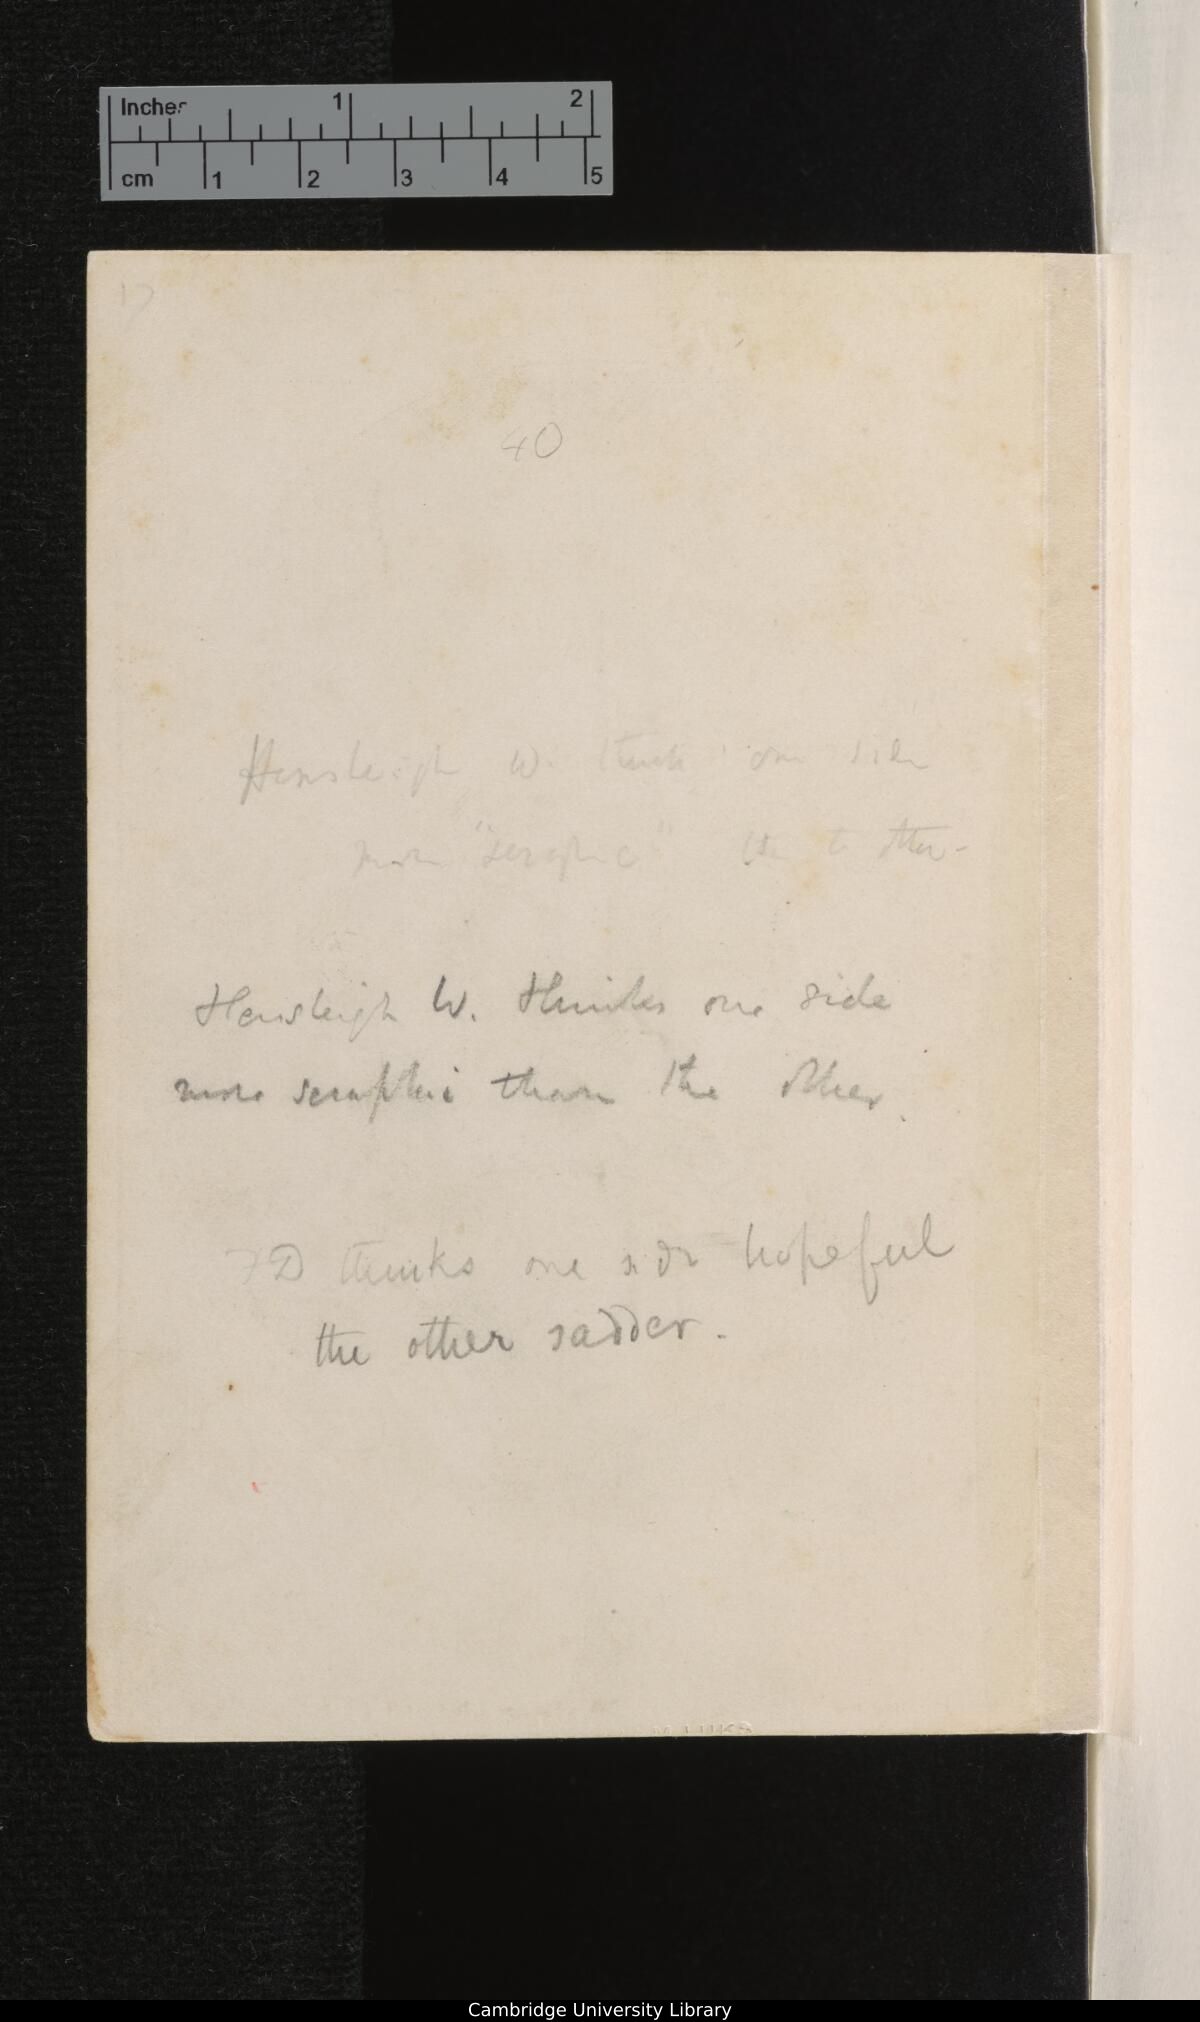 Inches 1 2
cm 1 2 3 4 5
17
40
Hensleigh W. thinks one side
more "seraphic" than the other -
Hensleigh W. thinks one side
more seraphic than the other.
FD thinks one side hopeful
the other sadder.
Cambridge University Library